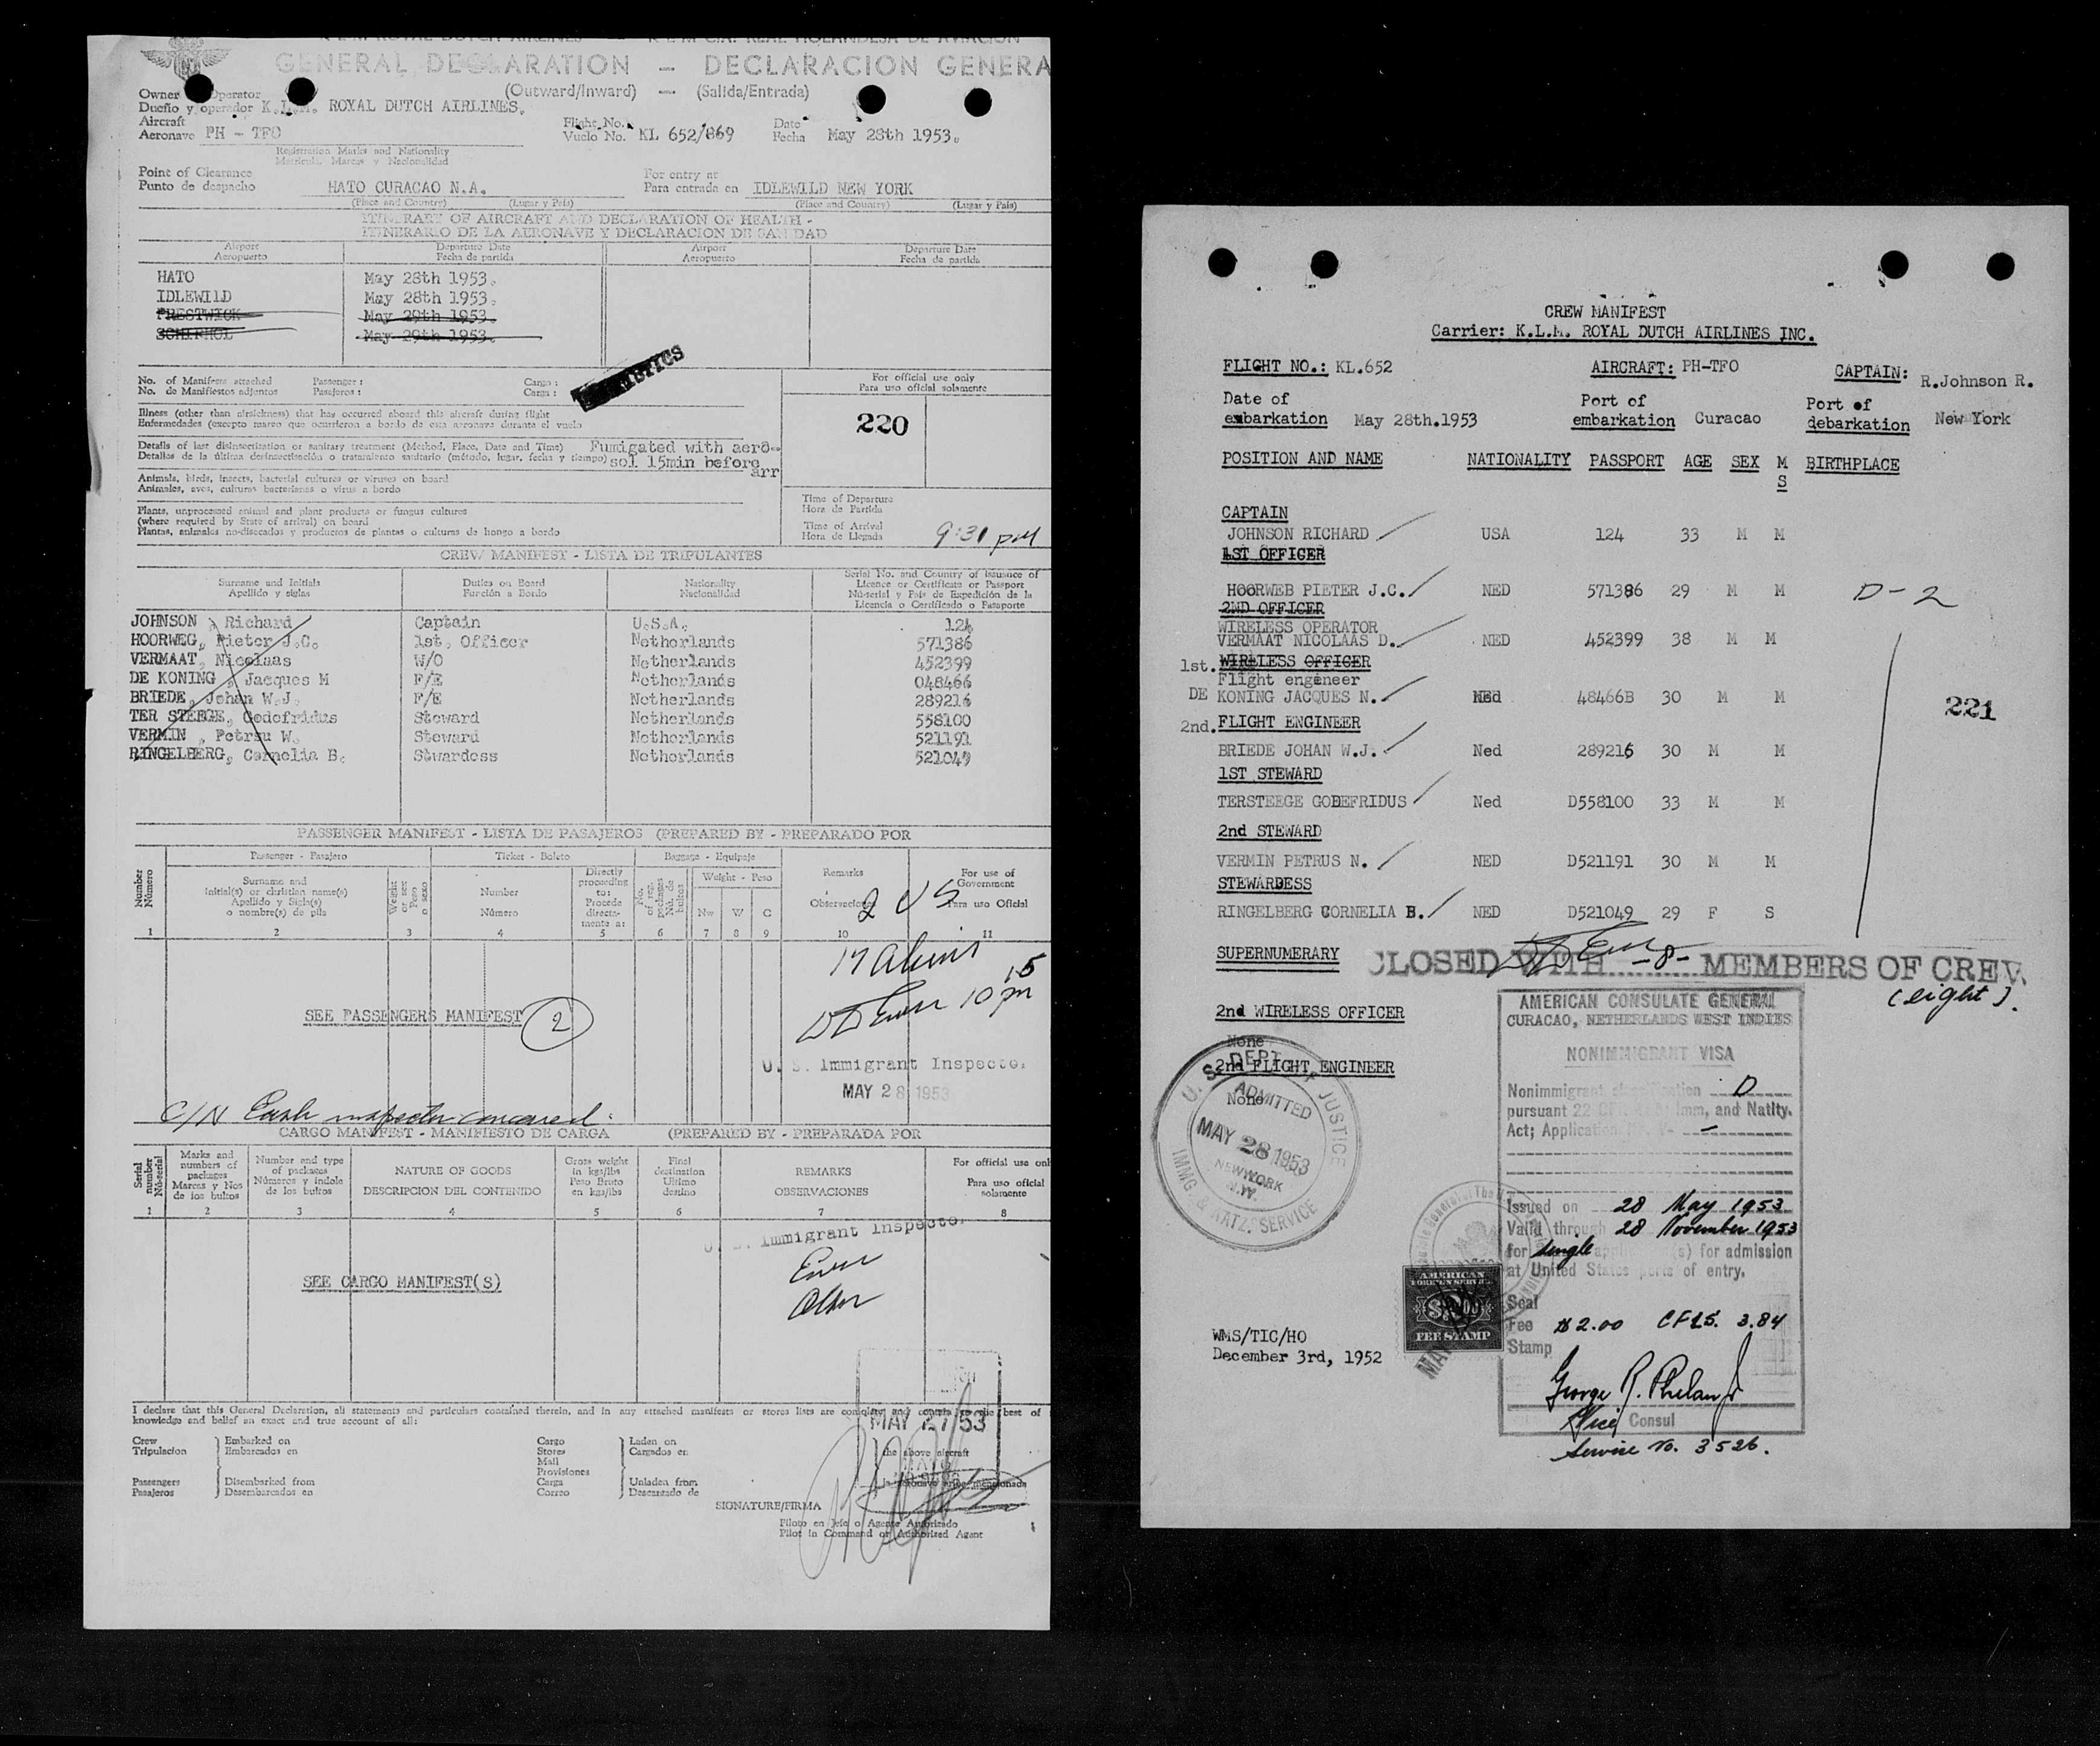 K L M ROYAL DUTCH AIRLINES — K L M CIA. REAL HOLANDESA DE AVIACION
GENERAL DECLARATION — DECLARACION GENERA
(Outward/Inward) — (Salida/Entrada)
Owner Operator
Dueño y operador K.L.M. ROYAL DUTCH AIRLINES.
Aircraft
Aeronave PH - TFO
Flight No.
Vuelo No. KL 652/869
Date
Fecha May 28th 1953.
Registration Marks and Nationality
Matricula, Marcas y Nacionalidad
Point of Clearance
Punto de despacho HATO CURACAO N.A.
For entry at
Para entrada en IDLEWILD NEW YORK
(Place and Country) (Lugar y País) (Place and Country) (Lugar y País)
ITINERARY OF AIRCRAFT AND DECLARATION OF HEALTH -
ITINERARIO DE LA AERONAVE Y DECLARACION DE SANIDAD
Airport Departure Date Airport Departure Date
Aeropuerto Fecha de partida Aeropuerto Fecha de partida
HATO May 28th 1953.
IDLEWILD May 28th 1953.
PRESTWICK May 29th 1953.
SCHIPHOL May 29th 1953.
No. of Manifests attached Passenger: Cargo:
No. de Manifiestos adjuntos Pasajeros: Carga:
For official use only
Para uso oficial solamente
220
Illness (other than airsickness) that has occurred aboard this aircraft during flight
Enfermedades (excepto mareo que ocurrieron a bordo de esta aeronave durante el vuelo
Details of last disinsectization or sanitary treatment (Method, Place, Date and Time) Fumigated with aero-
Detalles de la última desinsectización o tratamiento sanitario (método, lugar, fecha y tiempo) sol 15min before
arr
Animals, birds, insects, bacterial cultures or viruses on board
Animales, aves, culturas bacterianas o virus a bordo
Plants, unprocessed animal and plant products or fungus cultures
(where required by State of arrival) on board
Plantas, animales no-disecados y productos de plantas o culturas de hongo a bordo
Time of Departure
Hora de Partida
Time of Arrival
Hora de Llegada 9:31 pm
CREW MANIFEST - LISTA DE TRIPULANTES
Surname and Initials Duties on Board Nationality
Apellido y siglas Función a Bordo Nacionalidad
Serial No. and Country of issuance of
Licence or Certificate or Passport
Nú-serial y País de Expedición de la
Licencia o Certificado o Pasaporte
JOHNSON , Richard Captain U.S.A. 124
HOORWEG, Pieter J.C. 1st. Officer Netherlands 571386
VERMAAT, Nicolaas W/O Netherlands 452399
DE KONING , Jacques M F/E Netherlands 048466
BRIEDE, Johan W.J. F/E Netherlands 289216
TER STEEGE, Godefridus Steward Netherlands 558100
VERMIN , Petrsu W. Steward Netherlands 521191
RINGELBERG, Cornelia B. Stwardess Netherlands 521049
PASSENGER MANIFEST - LISTA DE PASAJEROS (PREPARED BY - PREPARADO POR
Passenger - Pasajero Ticket - Boleto Baggage - Equipaje
Number
Número
Surname and
initial(s) or christian name(s)
Apellido y Sigla(s)
o nombre(s) de pila
Weight or sex
Peso o sexo
Number
Número
Directly
proceeding
to:
Procede
directa-
mente a:
No. of seg. packages
Nú. de bultos
Weight - Peso
Nw W C
Remarks
Observaciones
For use of
Government
Para uso Oficial
1 2 3 4 5 6 7 8 9 10 11
2 US
17 aliens
15
10 pm
SEE PASSENGERS MANIFEST 2
U. S. Immigrant Inspector
MAY 28 1953
C/N
CARGO MANIFEST - MANIFIESTO DE CARGA (PREPARED BY - PREPARADA POR
Serial number
Nú-serial
Marks and
numbers of
packages
Marcas y Nos
de los bultos
Number and type
of packages
Números y índole
de los bultos
NATURE OF GOODS
DESCRIPCION DEL CONTENIDO
Gross weight
in kgs/lbs
Peso Bruto
en kgs/lbs
Final
destination
Ultimo
destino
REMARKS
OBSERVACIONES
For official use onl
Para uso oficial
solamente
1 2 3 4 5 6 7 8
U. S. Immigrant Inspector
SEE CARGO MANIFEST(S)
I declare that this General Declaration, all statements and particulars contained therein, and in any attached manifests or stores lists are complete and correct to the best of
knowledge and belief an exact and true account of all:
MAY 27/53
Crew Embarked on
Tripulacion Embarcados en
Passengers Disembarked from
Pasajeros Desembarcados en
Cargo Laden on
Stores Cargados en
Mail
Provisiones
Carga Unladen from
Correo Descargado de
the above aircraft
SIGNATURE/FIRMA
Piloto en Jefe o Agente Autorizado
Pilot in Command or Authorized Agent
CREW MANIFEST
Carrier: K.L.M. ROYAL DUTCH AIRLINES INC.
FLIGHT NO.: KL.652 AIRCRAFT: PH-TFO CAPTAIN: R.Johnson R.
Date of
embarkation May 28th.1953
Port of
embarkation Curacao
Port of
debarkation New York
POSITION AND NAME NATIONALITY PASSPORT AGE SEX M S BIRTHPLACE
CAPTAIN
JOHNSON RICHARD USA 124 33 M M
1ST OFFICER
HOORWEB PIETER J.C. NED 571386 29 M M D-2
2ND OFFICER
WIRELESS OPERATOR
VERMAAT NICOLAAS D. NED 452399 38 M M
1st. WIRELESS OFFICER
Flight engineer
DE KONING JACQUES N. NEd 48466B 30 M M
221
2nd. FLIGHT ENGINEER
BRIEDE JOHAN W.J. Ned 289216 30 M M
1ST STEWARD
TERSTEEGE GODEFRIDUS Ned D558100 33 M M
2nd STEWARD
VERMIN PETRUS N. NED D521191 30 M M
STEWARDESS
RINGELBERG CORNELIA B. NED D521049 29 F S
SUPERNUMERARY CLOSED WITH -8- MEMBERS OF CREW
(eight).
2nd WIRELESS OFFICER
None
2nd FLIGHT ENGINEER
None
U. S. DEPT. OF JUSTICE
ADMITTED
MAY 28 1953
NEW YORK
N.Y.
IMMG. & NATZ. SERVICE
AMERICAN CONSULATE GENERAL
CURACAO, NETHERLANDS WEST INDIES
NONIMMIGRANT VISA
Nonimmigrant classification D
pursuant 22 CFR Imm, and Natlty.
Act; Application No. V- —
Issued on 28 May 1953
Valid through 28 November 1953
for single application(s) for admission
at United States ports of entry.
Seal
Fee $2.00 CFLS. 3.84
Stamp
AMERICAN
FOREIGN SERVICE
FEE STAMP
George R. Phelan Jr
Vice Consul
Service No. 3526.
WMS/TIC/HO
December 3rd, 1952